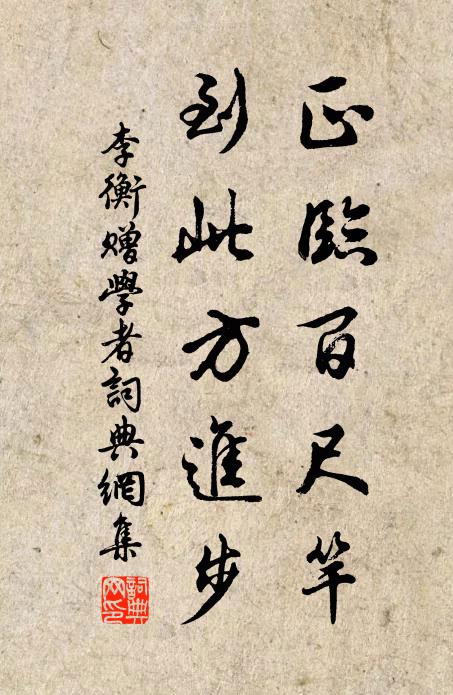 正臨百尺竿
到此方進步
李衡贈學者詞典網集
詞典網印